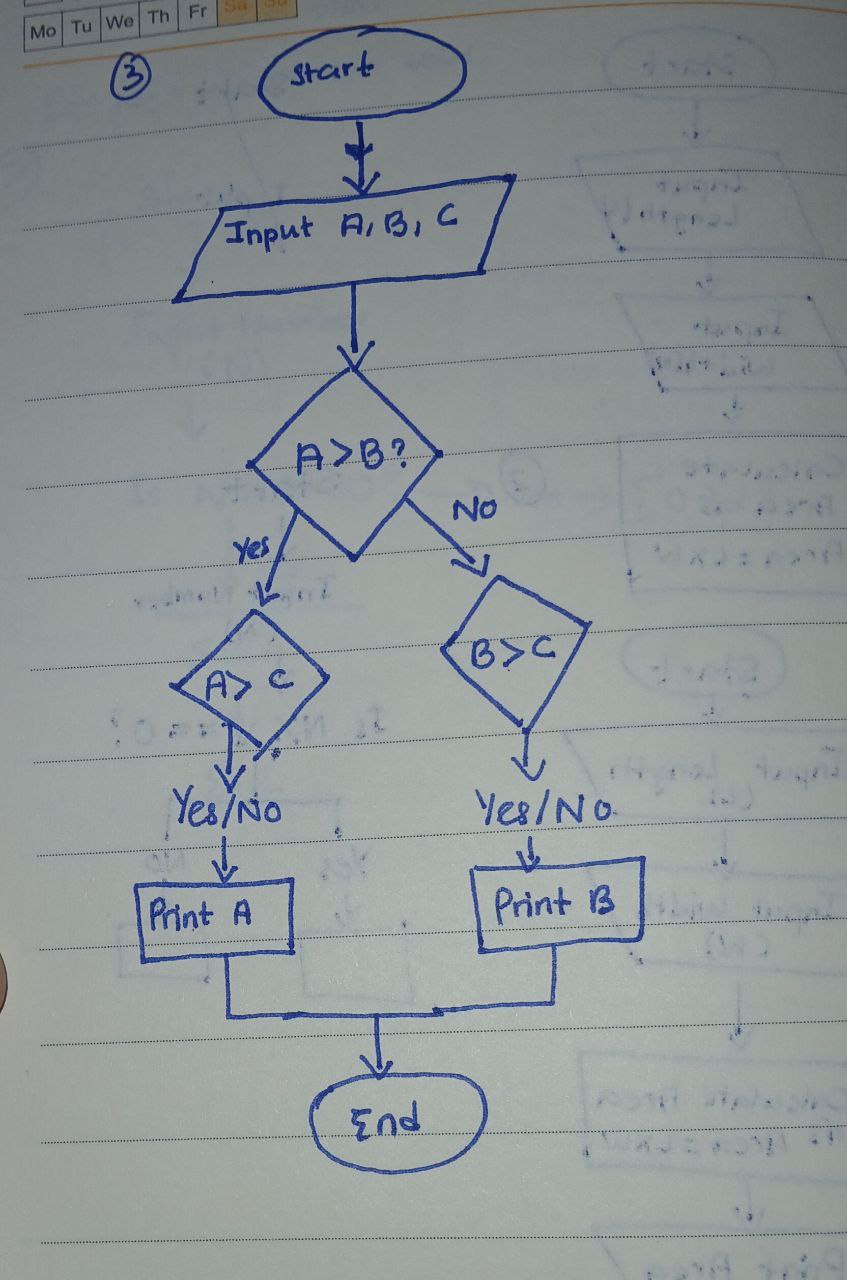 Mo Tu We Th Fr Sa Su
3
Start
Input A, B, C
A>B?
Yes
No
A> C
B>C
Yes/No
Yes/No
Print A
Print B
End